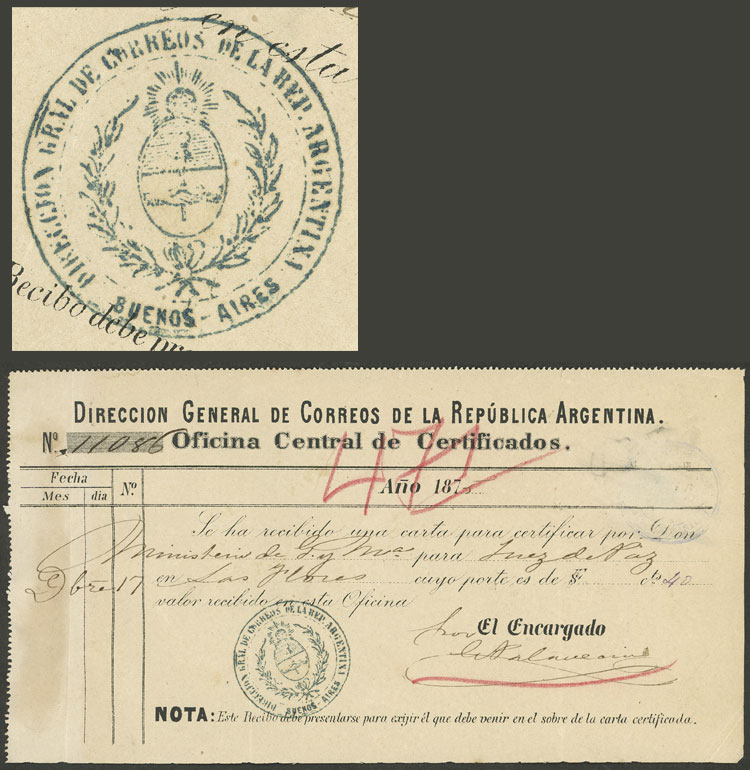 en esta
DIRECCION GRAL DE CORREOS DE LA REP. ARGENTINA
BUENOS-AIRES
Recibo debe pre
DIRECCION GENERAL DE CORREOS DE LA REPÚBLICA ARGENTINA.
Nº 11086 Oficina Central de Certificados.
471
Fecha
Mes dia Nº
Año 187
Se ha recibido una carta para certificar por Don
Ministerio de para Juez de Paz
Dbre 17 en Las Flores cuyo porte es de $F cts 40
valor recibido en esta Oficina
El Encargado
DIRECCION GRAL DE CORREOS DE LA REP. ARGENTINA
BUENOS-AIRES
NOTA: Este Recibo debe presentarse para exijir él que debe venir en el sobre de la carta certificada.